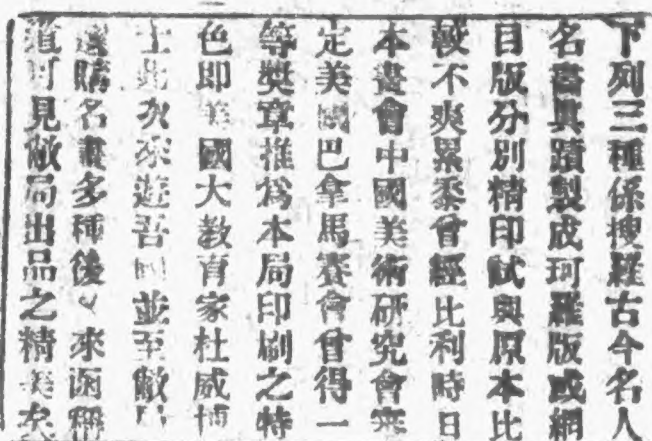 下列三種係搜羅古今名人
名畫真蹟製成珂羅版或網
目版分別精印試與原本比
較不爽累黍曾經比利時日
本畫會中國美術研究會審
定美國巴拿馬賽會曾得一
等獎章推為本局印刷之特
色即美國大教育家杜威博
士此次來遊吾國並至敝局
選購名畫多種後又來函稱
道可見敝局出品之精美矣